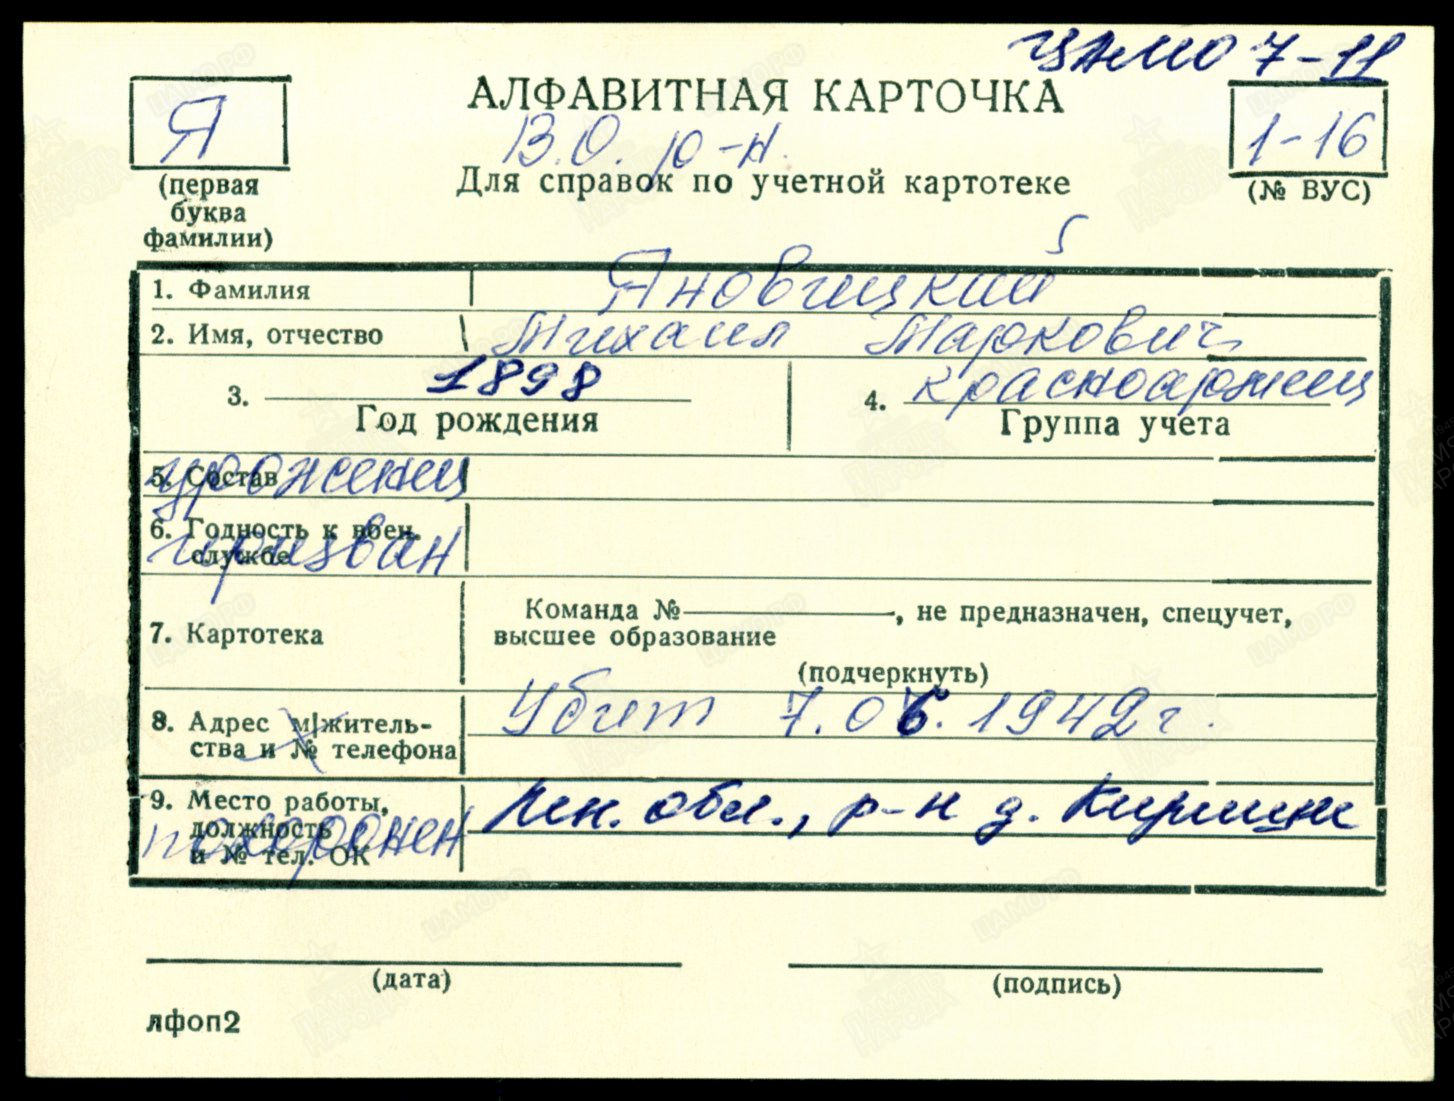 ЦАМО 7-11
Я
АЛФАВИТНАЯ КАРТОЧКА
1-16
В.О. р-н.
(первая
буква
фамилии)
Для справок по учетной картотеке
(№ ВУС)
1. Фамилия Яновицкий
2. Имя, отчество Михаил Маркович
3. 1898
Год рождения
4. красноармеец
Группа учета
5. Состав
уроженец
6. Годность к воен.
службе
призван
7. Картотека
Команда № , не предназначен, спецучет,
высшее образование
(подчеркнуть)
8. Адрес м/житель-
ства и № телефона
Убит 7.06.1942 г.
9. Место работы,
должность
и № тел. ОК
похоронен
Лен. обл., р-н д. Кириши
(дата)
(подпись)
лфоп2
ЦАМО.РФ
ПАМЯТЬ НАРОДА